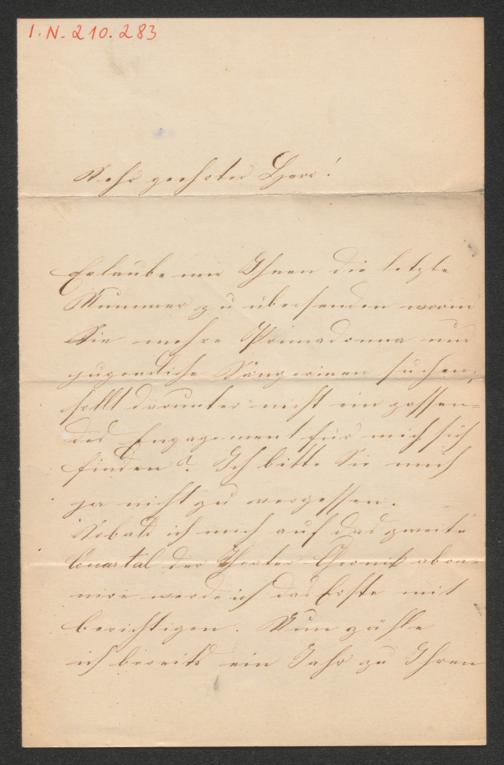 I. N. 210.283
Sehr geehrter Herr!
Erlaube mir Ihnen die letzte
Nummer zu übersenden worin
Sie mehre Primadonna und
jugendliche Sängerinen suchen,
sollt darunter nicht ein passen=
des Engagement für mich sich
finden? Ich bitte Sie mich
ja nicht zu vergessen.
Sobald ich mich auf das zweite
Quartal der Theater Chronik abon=
nire werde ich das Erste mit
berichtigen. Nun zähle
ich bereits ein Jahr zu Ihren